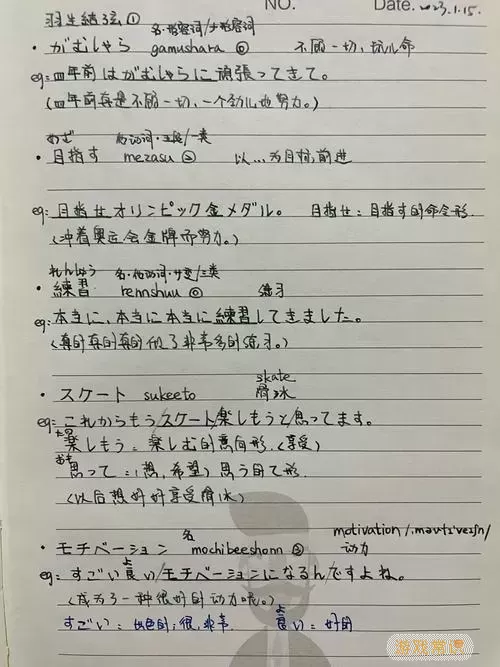 NO.
Date. 2023.1.15.
羽生結弦①
名·形容词/ナ形容词
・がむしゃら gamushara ⓪ 不顾一切, 玩儿命
eg: 四年前はがむしゃらに頑張ってきて。
(四年前真是不顾一切, 一个劲儿地努力。)
めざ 他动词·五段/一类
・目指す mezasu ② 以...为目标, 前进
eg: 目指せオリンピック金メダル。 目指せ: 目指す的命令形.
(冲着奥运会金牌而努力。)
れんしゅう 名·他动词·サ变/三类
・練習 rennshuu ⓪ 练习
eg: 本当に、本当に本当に練習してきました。
(真的真的真的做了非常多的练习。)
skate
・スケート sukeeto 滑冰
eg: これからもう/スケート/楽しもうと思ってます。
たの
楽しもう: 楽しむ的意向形. (享受)
おも
思って: (想, 希望) 思う的て形.
(以后想好好享受滑冰)
名 motivation
・モチベーション mochibeeshonn ③ 动力
よ
eg: すごい良い/モチベーションになるんですよね。
(成为了一种很好的动力呢。)
よ
すごい: 出色的; 很, 非常. 良い: 好的
游戏常谈